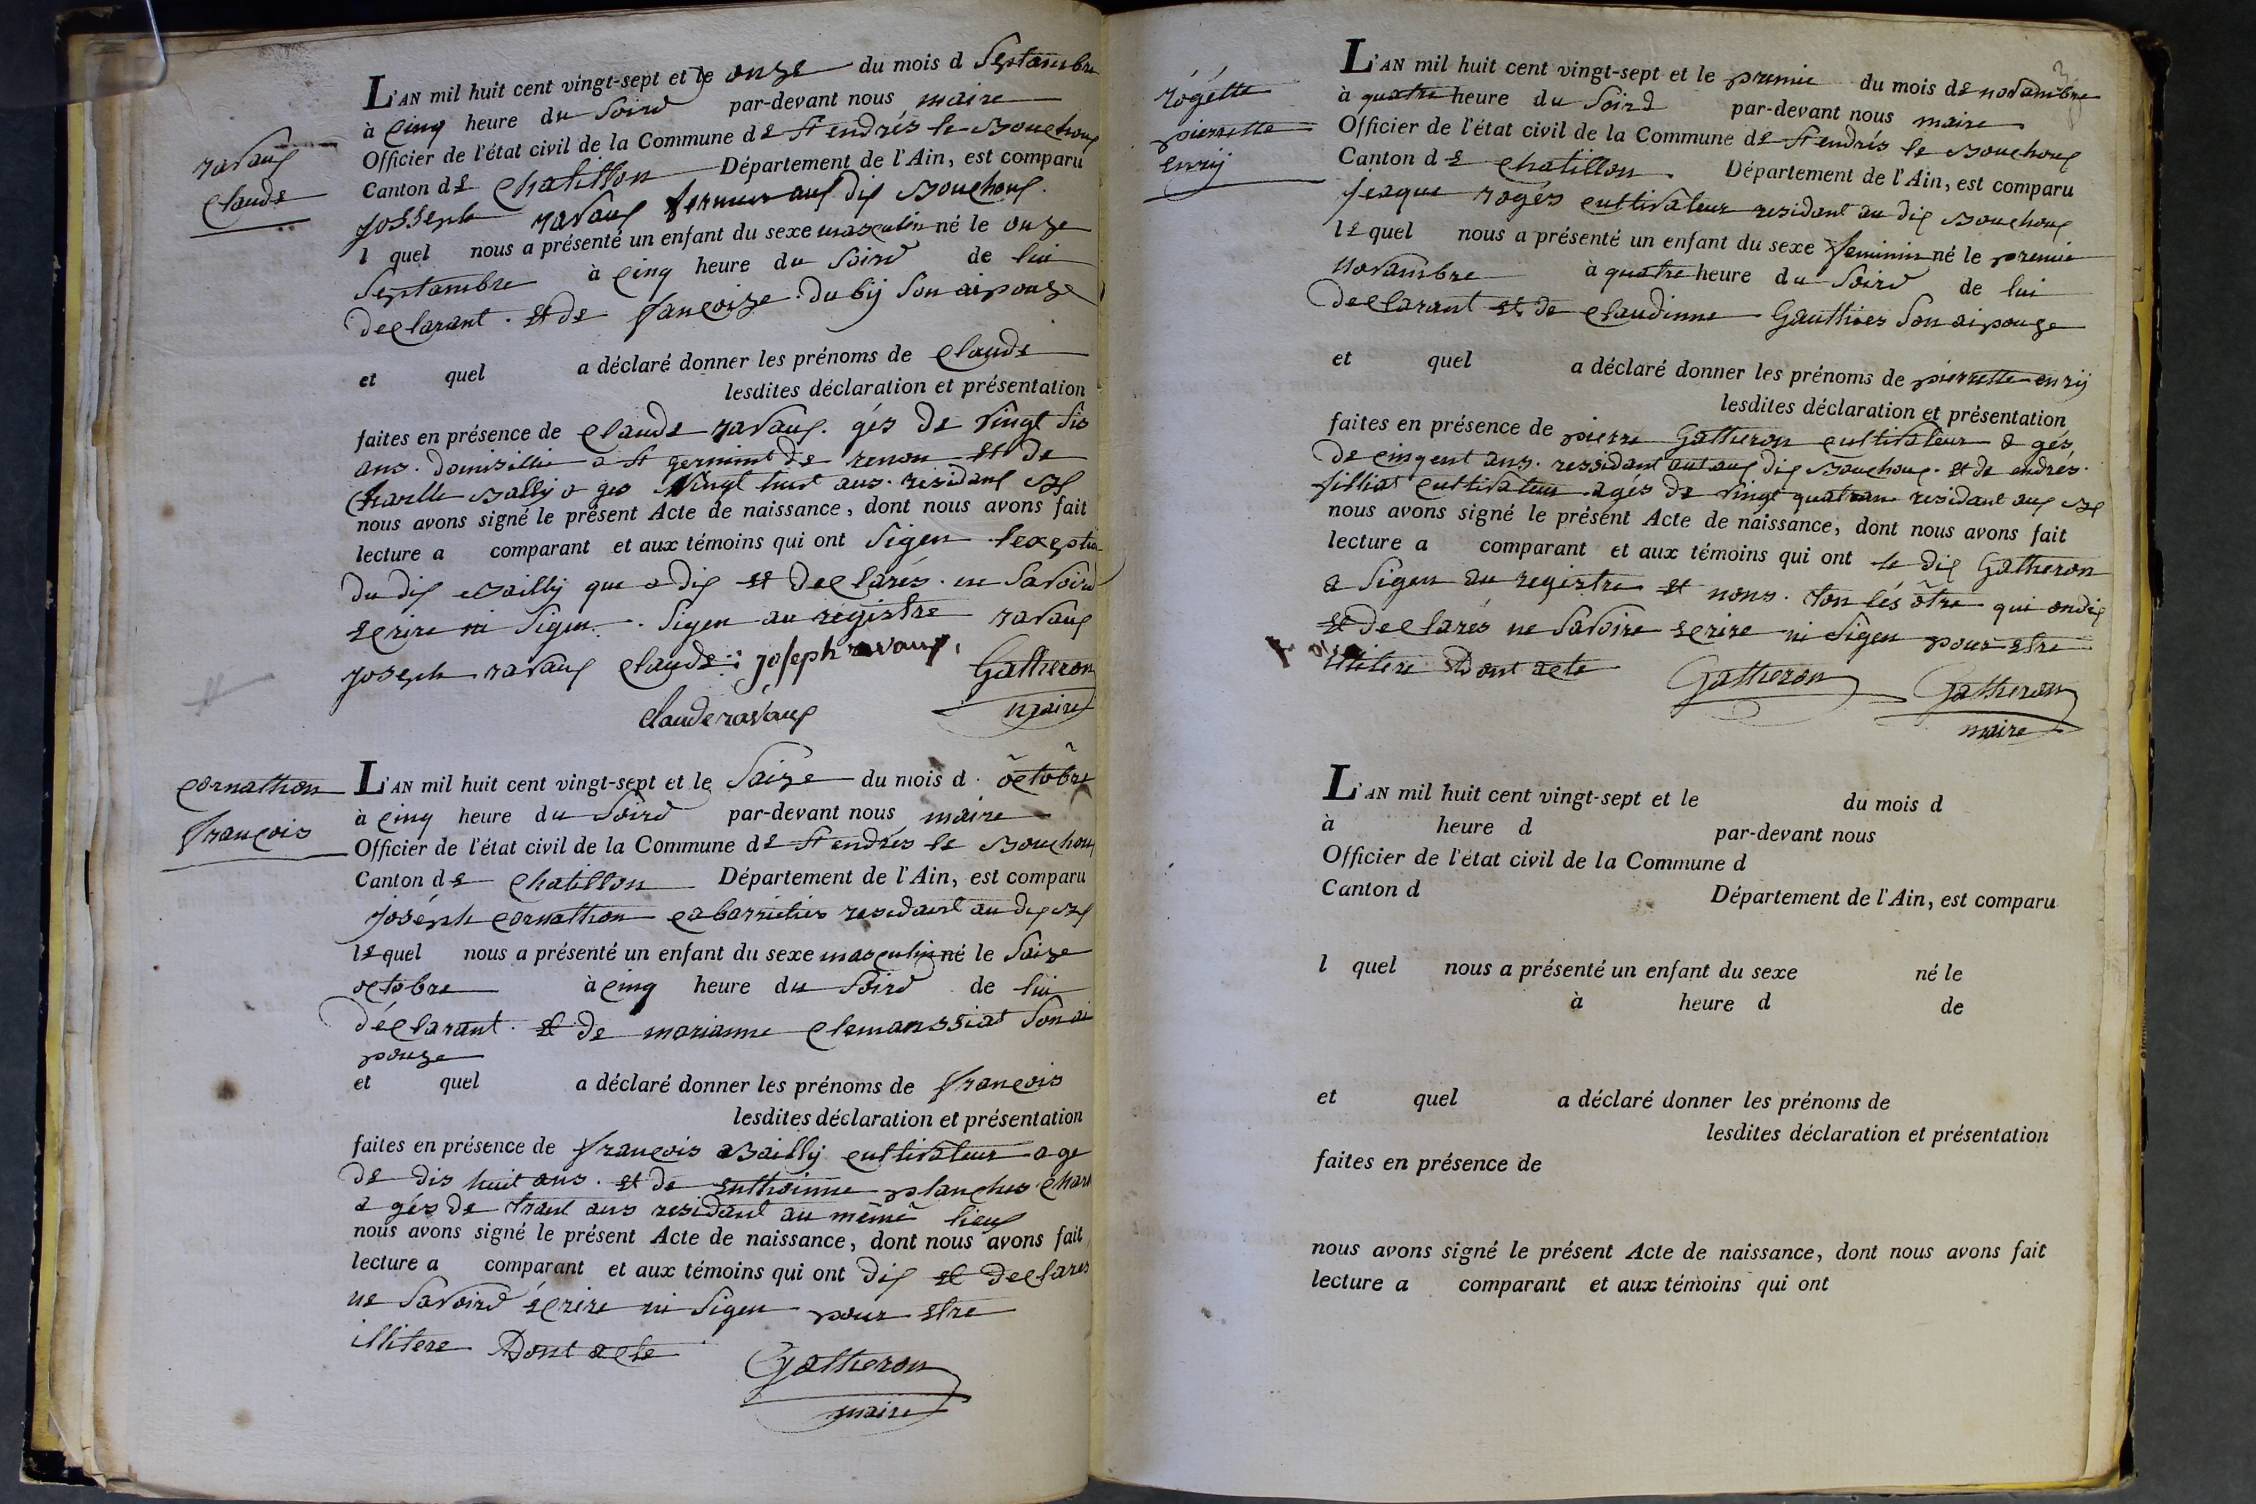 ravaux
Claude
L'AN mil huit cent vingt-sept et le onze du mois d Septambre
à Cinq heure du Soird par-devant nous maire
Officier de l'état civil de la Commune de St endrés le Bouchoux
Canton de Chatillon Département de l'Ain, est comparu
Josseph ravaux fermier aux dix Bouchoux
l quel nous a présenté un enfant du sexe masculin né le onze
Septambre à Cinq heure du Soird de lui
declarant et de francoize dubij Son aipouze
et quel a déclaré donner les prénoms de Claude
lesdites déclaration et présentation
faites en présence de Claude ravaux. gés de vingt Sis
ans. domisillié a St germint de renon et de
Charlle Bally a gés vingt huit ans. residant
nous avons signé le présent Acte de naissance, dont nous avons fait
lecture a comparant et aux témoins qui ont Sigen lexeption
du dix Bailly que a dix et declarés. ne Savoird
ecrire ni Sigen. Sigen au registre ravaux
joseph ravaux Claude: joseph ravaux,
Gatheron
Claude ravaux
maire
Cornathon
francois
L'AN mil huit cent vingt-sept et le Saize du mois d. octobre
à Cinq heure du Soird par-devant nous maire
Officier de l'état civil de la Commune de St endrés le Bouchoux
Canton de Chatillon Département de l'Ain, est comparu
joséph Cornathon Cabarrietier residant au dix
le quel nous a présenté un enfant du sexe masculin né le Saize
octobre à Cinq heure du Soird de lui
déclarant. et de marianne Clemanssiat Son ai
pouze
et quel a déclaré donner les prénoms de francois
lesdites déclaration et présentation
faites en présence de francois Bailly cultivateur a ge
de dis huit ans. et de enthoinne planches
a gés de trant ans residant au même lieux
nous avons signé le présent Acte de naissance, dont nous avons fait
lecture a comparant et aux témoins qui ont dix et declarés
ne Savoird écrire ni Sigen pour etre
illitere Dont acte
Gatheron
maire
rogétte
pierrette
enrij
L'AN mil huit cent vingt-sept et le premie du mois de novambre
à quatre heure du Soird par-devant nous maire
Officier de l'état civil de la Commune de St endrés le Bouchoux
Canton de Chatillon. Département de l'Ain, est comparu
jeaque rogés cultivateur residant au dix Bouchoux
le quel nous a présenté un enfant du sexe feminin né le premie
novambre à quatre heure du Soird de lui
declarant et de Claudinne Gauthies Son aipouze
et quel a déclaré donner les prénoms de pierrette enrij
lesdites déclaration et présentation
faites en présence de pierre Gatheron cultivateur a gés
de cinqent ans. ressidant aux dix Bouchoux. et de endrés.
filliat cultivateur agés de vingt quatre residant aux
nous avons signé le présent Acte de naissance, dont nous avons fait
lecture a comparant et aux témoins qui ont le dix Gatheron
a Sigen au registre et nons. ton lés ôtre qui ondix
et declarés ne Savoire ecrire ni Sigen pour etre
illitere Dont acte
Gatheron
Gatheron
maire
L'AN mil huit cent vingt-sept et le du mois d
à heure d par-devant nous
Officier de l'état civil de la Commune d
Canton d Département de l'Ain, est comparu
l quel nous a présenté un enfant du sexe né le
à heure d de
et quel a déclaré donner les prénoms de
lesdites déclaration et présentation
faites en présence de
nous avons signé le présent Acte de naissance, dont nous avons fait
lecture a comparant et aux témoins qui ont